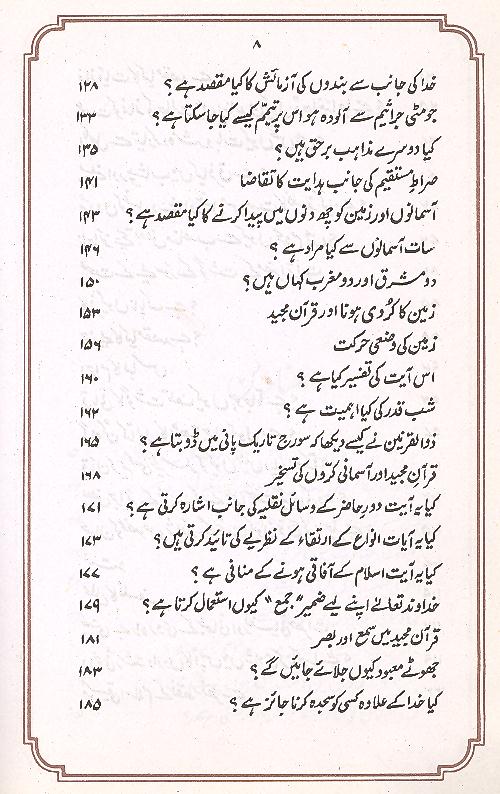 ۸
خدا کی جانب سے بندوں کی آزمائش کا کیا مقصد ہے؟ ۱۲۸
جو مٹی جراثیم سے آلودہ ہو اس پر تیمّم کیسے کیا جا سکتا ہے؟ ۱۳۳
کیا دوسرے مذاہب برحق ہیں؟ ۱۳۵
صراطِ مستقیم کی جانب ہدایت کا تقاضا ۱۴۱
آسمانوں اور زمین کو چھ دنوں میں پیدا کرنے کا کیا مقصد ہے؟ ۱۴۳
سات آسمانوں سے کیا مراد ہے؟ ۱۴۶
دو مشرق اور دو مغرب کہاں ہیں؟ ۱۵۰
زمین کا کُروی ہونا اور قرآن مجید ۱۵۳
زمین کی وضعی حرکت ۱۵۶
اس آیت کی تفسیر کیا ہے؟ ۱۶۰
شب قدر کی کیا اہمیت ہے؟ ۱۶۲
ذوالقرنین نے کیسے دیکھا کہ سورج تاریک پانی میں ڈوبتا ہے؟ ۱۶۵
قرآن مجید اور آسمانی کرّوں کی تسخیر ۱۶۸
کیا یہ آیت دورِ حاضر کے وسائل نقلیہ کی جانب اشارہ کرتی ہے؟ ۱۷۱
کیا یہ آیات انواع کے ارتقاء کے نظریے کی تائید کرتی ہیں؟ ۱۷۳
کیا یہ آیت اسلام کے آفاقی ہونے کے منافی ہے؟ ۱۷۷
خداوند تعالےٰ اپنے لیے ضمیر "جمع" کیوں استعمال کرتا ہے؟ ۱۷۹
قرآن مجید میں سمع اور بصر ۱۸۱
جھوٹے معبود کیوں جلائے جائیں گے؟ ۱۸۳
کیا خدا کے علاوہ کسی کو سجدہ کرنا جائز ہے؟ ۱۸۵